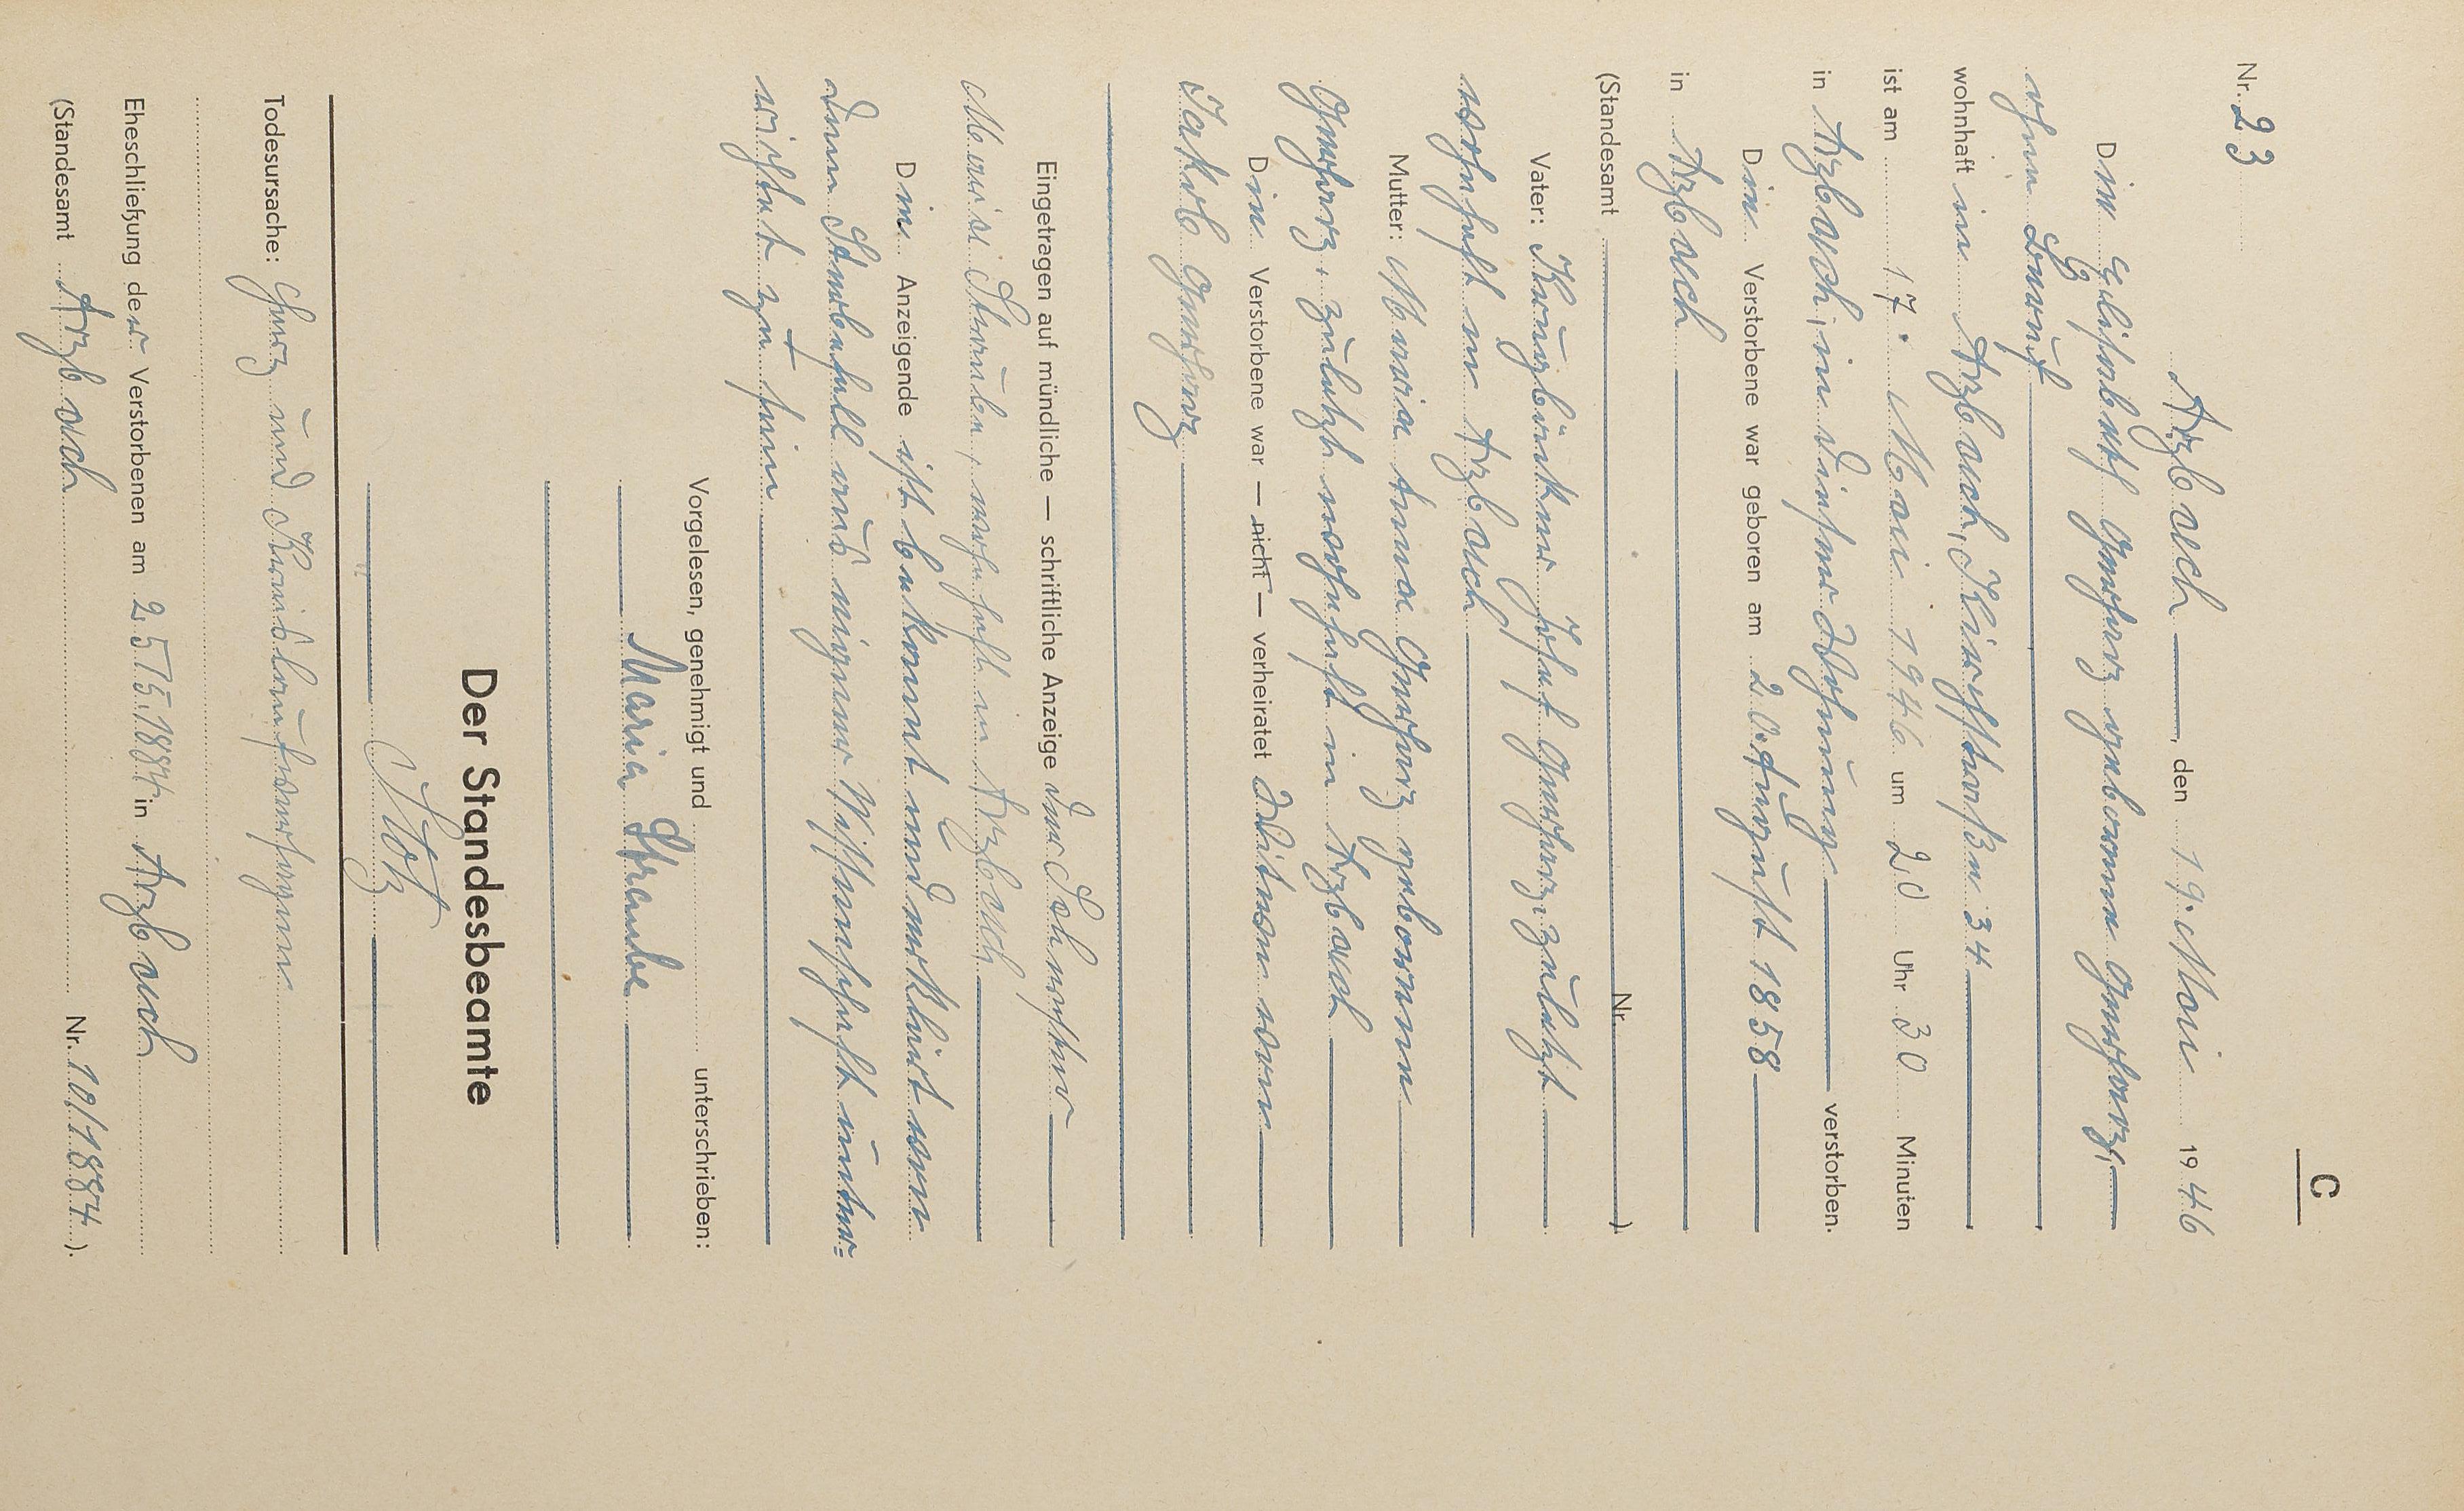 C
Nr. 23
Arzbach, den 19. Mai 1946
Die Elisabeth Gerharz geborene Gerharz,
ohne Beruf
wohnhaft in Arzbach, Kirchstraße 34
ist am 17. Mai 1946 um 20 Uhr 30 Minuten
in Arzbach, in dieser Wohnung verstorben.
Die Verstorbene war geboren am 20. August 1858
in Arzbach
(Standesamt Nr. )
Vater: Krugbäcker Josef Gerharz, zuletzt
wohnhaft in Arzbach
Mutter: Maria Anna Gerharz geborene
Gerharz, zuletzt wohnhaft in Arzbach
Die Verstorbene war — nicht — verheiratet Witwe von
Jakob Gerharz
Eingetragen auf mündliche — schriftliche Anzeige der
Maria Straube, wohnhaft in Arzbach
Die Anzeigende ist bekannt und erklärt von
dem Sterbefall aus eigener Wissenschaft unter=
richtet zu sein
Vorgelesen, genehmigt und unterschrieben:
Maria Straube
Der Standesbeamte
Stotz
Todesursache: Herz und Kreislaufversagen
Eheschließung der Verstorbenen am 25/5.1884 in Arzbach
(Standesamt Arzbach Nr. 10/1884.).